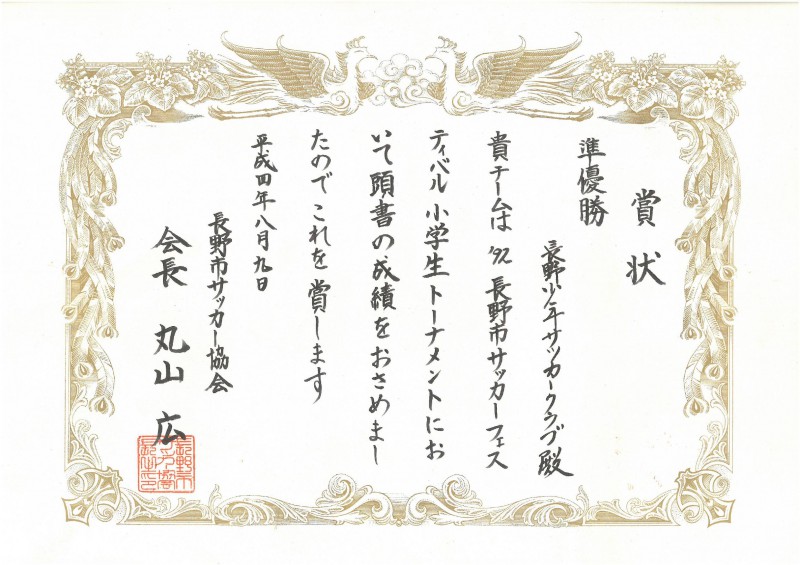 賞状
準優勝
長野少年サッカークラブ殿
貴チームは '92 長野市サッカーフェス
ティバル 小学生トーナメントにお
いて頭書の成績をおさめまし
たのでこれを賞します
平成四年八月九日
長野市サッカー協会
会長 丸山 広